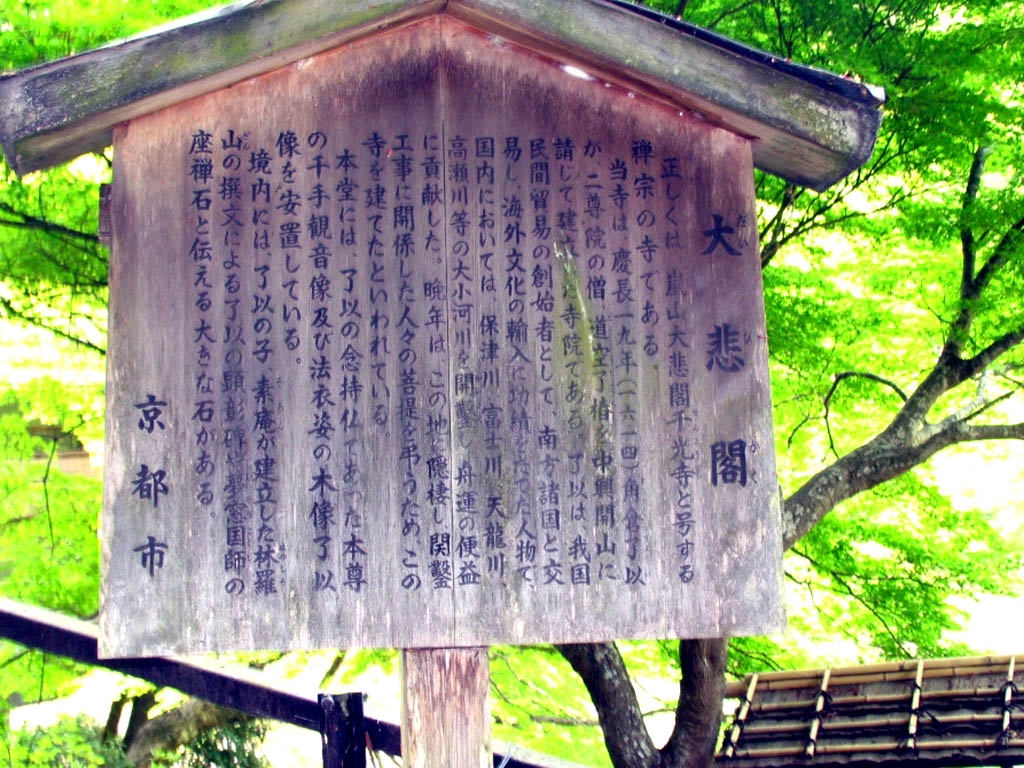 大悲閣
だいひかく
正しくは、嵐山大悲閣千光寺と号する
禅宗の寺である。
当寺は、慶長一九年(一六一四)角倉了以
が、二尊院の僧、道空了椿を中興開山に
請じて建てた寺院である。了以は、我国
民間貿易の創始者として、南方諸国と交
易し、海外文化の輸入に功績をたてた人物で、
国内においては、保津川、富士川、天龍川、
高瀬川等の大小河川を開鑿し、舟運の便益
に貢献した。晩年は、この地に隠棲し、開鑿
工事に関係した人々の菩提を弔うため、この
寺を建てたといわれている。
本堂には、了以の念持仏であった本尊
の千手観音像及び法衣姿の木像了以
像を安置している。
境内には、了以の子、素庵が建立した林羅
山の撰文による了以の顕彰碑や夢窓国師の
座禅石と伝える大きな石がある。
京都市